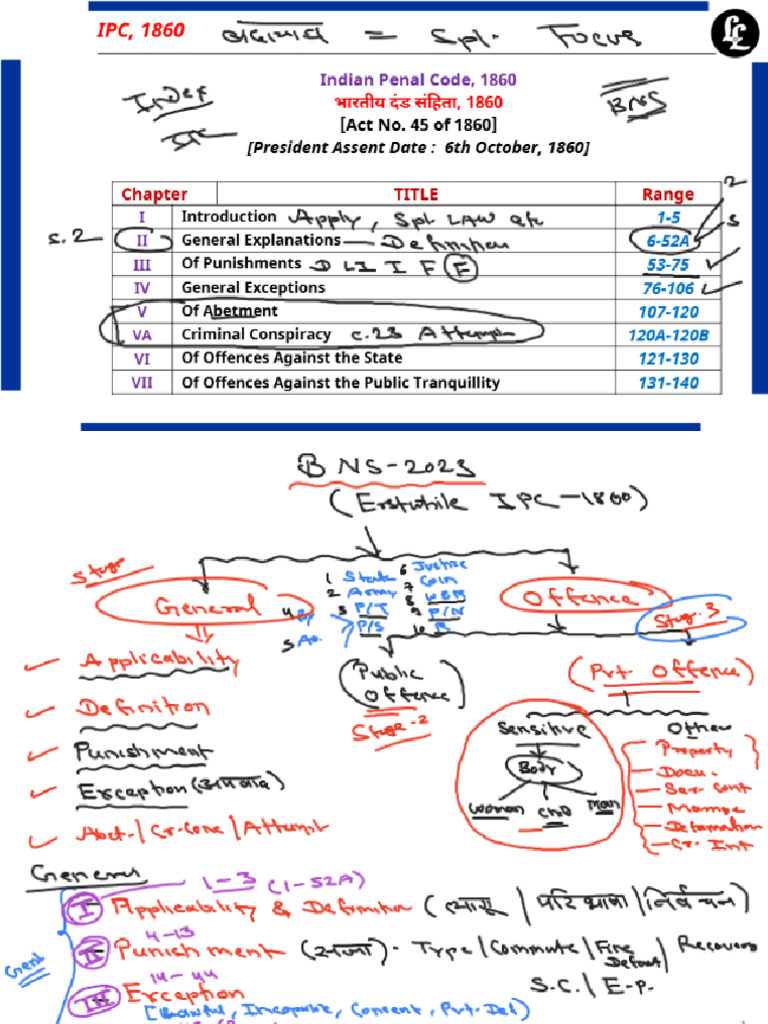 IPC, 1860 = Spl. Focus
Indian Penal Code, 1860
भारतीय दंड संहिता, 1860
BNS
[Act No. 45 of 1860]
[President Assent Date : 6th October, 1860]
Chapter TITLE Range
I Introduction Apply, Spl LAW 1-5
S.2 II General Explanations — Definition 6-52A 2
III Of Punishments D L I I F F 53-75
IV General Exceptions 76-106
V Of Abetment 107-120
VA Criminal Conspiracy C.23 Attempt 120A-120B
VI Of Offences Against the State 121-130
VII Of Offences Against the Public Tranquillity 131-140
BNS-2023
(Erstwhile IPC-1860)
1 State 6 Justice
2 Army 7 Coin
3 P/T 8 W&M
P/S 9 P/N
General Offence Stage-3
Applicability
(Public Offence) Stage-2
(Pvt Offence)
Definition
Sensitive Other
Punishment
Body Property
Docu.
Exception (अपवाद)
Women Child Man
Ser. Cont
Marriage
Abet/Cr. Con/Attempt
Defamation
Cr. Int
General
1-3 (1-52A)
I Applicability & Definition (लागू / परिभाषा / निर्वचन)
4-13
II Punishment (सजा) - Type/Commute/Fine Default/Recovery
S.C./E.P.
14-44
III Exception
[Lawful, Incapable, Consent, Pvt. Def]